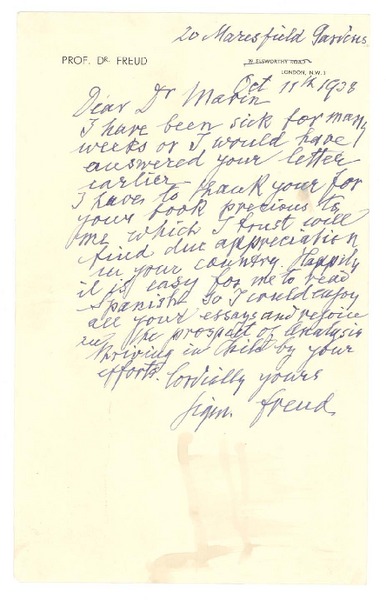 20 Maresfield Gardens
PROF. DR. FREUD
39 ELSWORTHY ROAD
LONDON, N.W.3
Oct 11th 1938
Dear Dr Marin
I have been sick for many
weeks or I would have
answered your letter
earlier
I have to thank your for
your book precious to
me which I trust will
find due appreciation
in your country. Happily
it is easy for me to read
Spanish. So I could enjoy
all your essays and rejoice
in the prospect of Analysis
thriving in Chile by your
efforts. Cordially yours
sigm. Freud